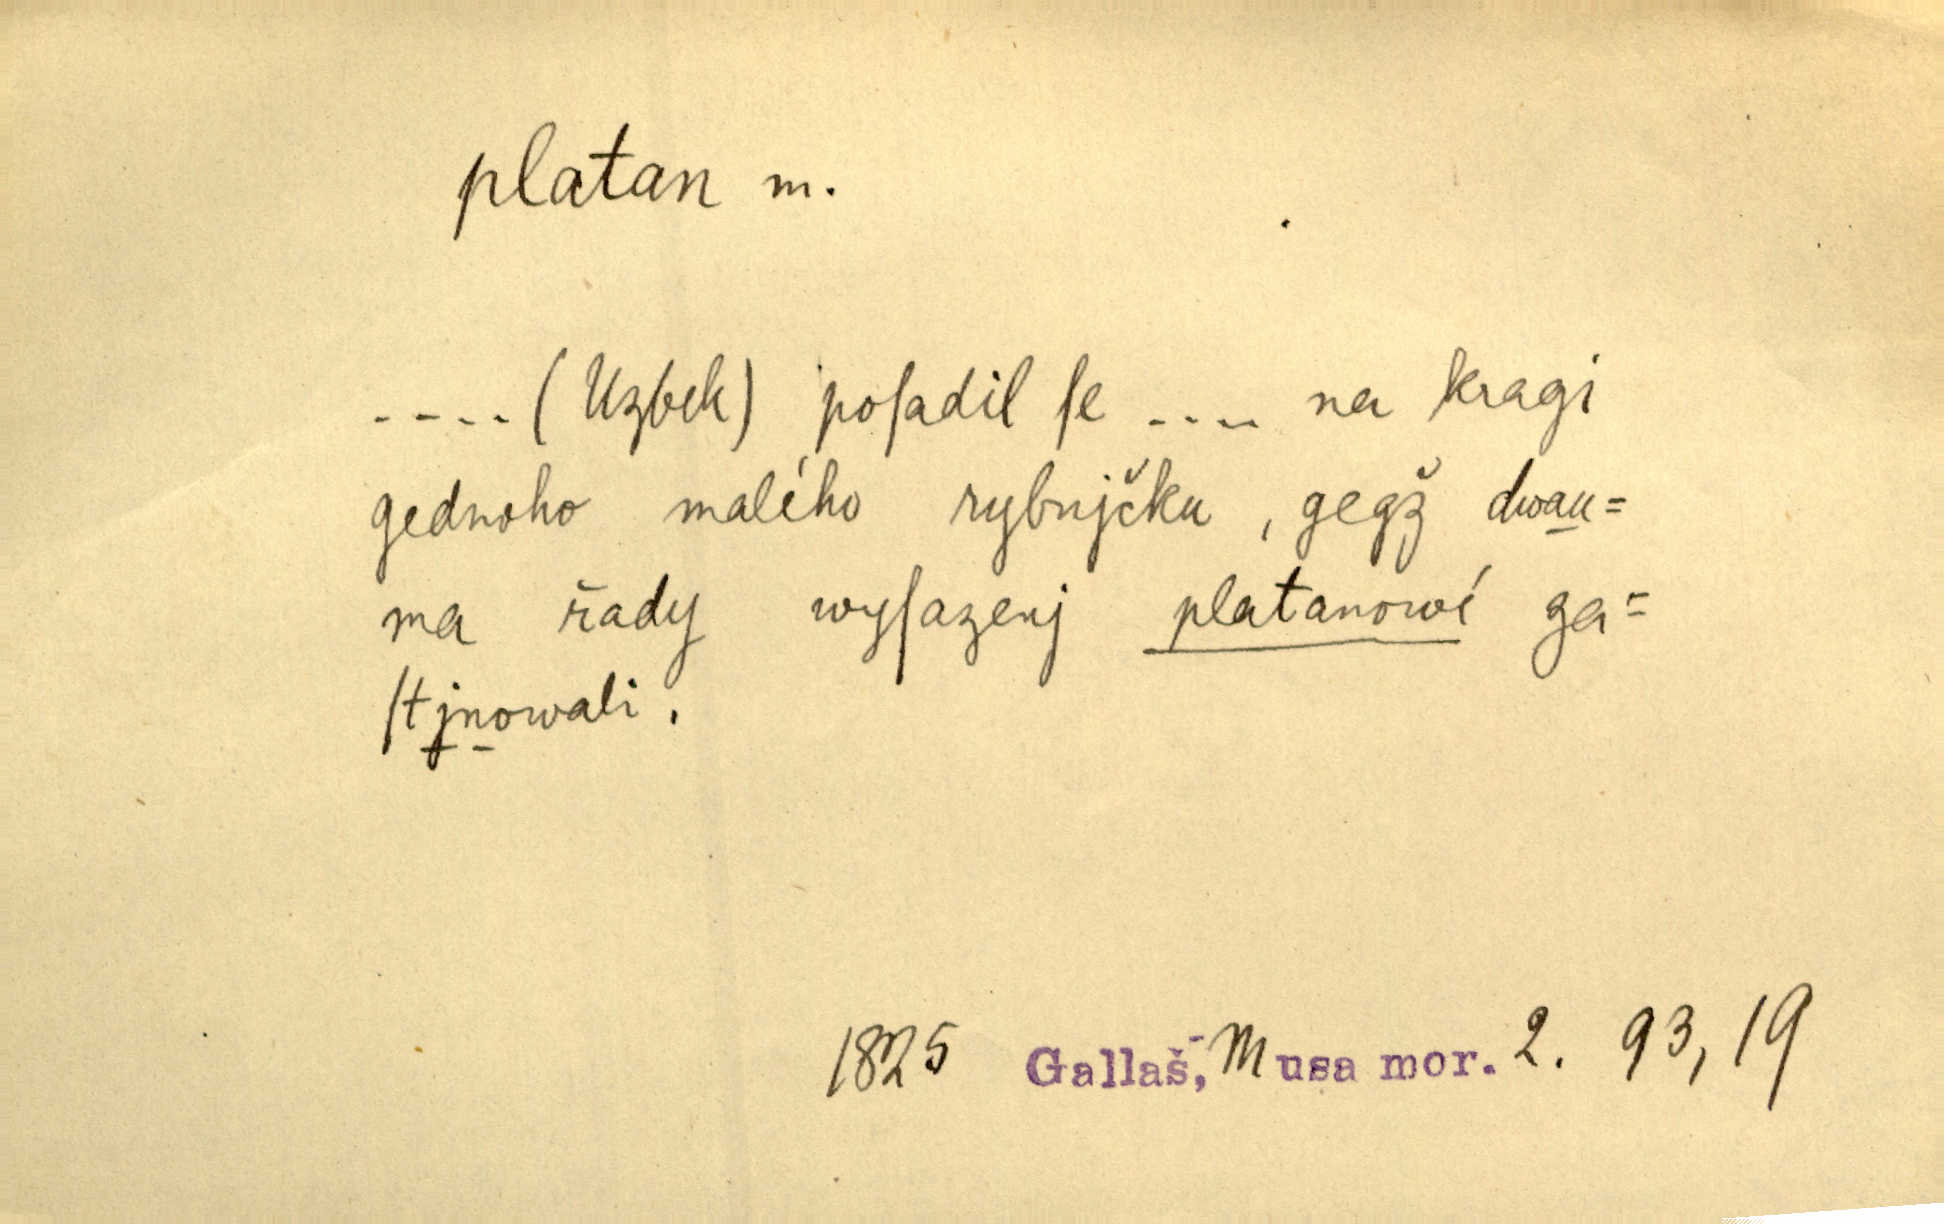 platan m.
.... (Uzbek) poſadil ſe .... na kragi
gednoho malého rybnjčku, gegž dwau=
ma řady wyſazenj platanowé za=
ſtjnowali.
1825 Gallaš, Musa mor. 2. 93, 19